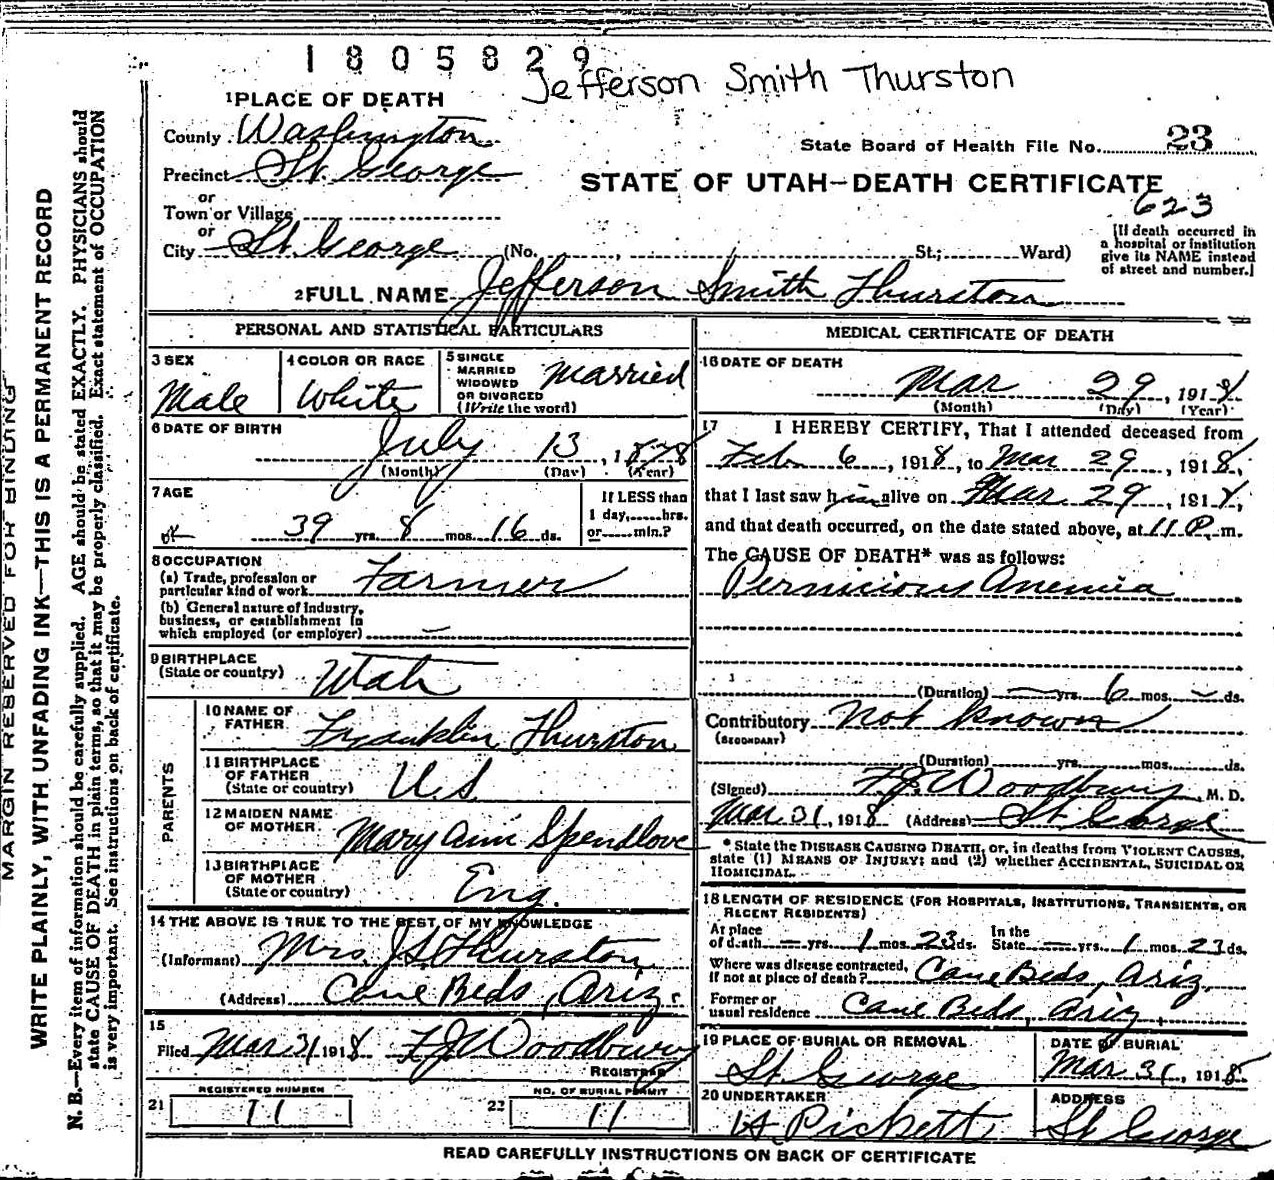 1805829
Jefferson Smith Thurston
1 PLACE OF DEATH
County Washington
State Board of Health File No. 23
Precinct St. George
STATE OF UTAH—DEATH CERTIFICATE
or
Town or Village
623
or
City St. George (No. , St.; Ward)
[If death occurred in
a hospital or institution
give its NAME instead
of street and number.]
2 FULL NAME Jefferson Smith Thurston
PERSONAL AND STATISTICAL PARTICULARS
3 SEX
Male
4 COLOR OR RACE
White
5 SINGLE
MARRIED
WIDOWED
OR DIVORCED
(Write the word)
Married
6 DATE OF BIRTH
July 13, 1878
(Month) (Day) (Year)
7 AGE
39 yrs. 8 mos. 16 ds.
If LESS than
1 day, hrs.
or min.?
8 OCCUPATION
(a) Trade, profession or
particular kind of work Farmer
(b) General nature of Industry,
business, or establishment in
which employed (or employer) —
9 BIRTHPLACE
(State or country) Utah
PARENTS
10 NAME OF
FATHER Franklin Thurston
11 BIRTHPLACE
OF FATHER
(State or country) U.S.
12 MAIDEN NAME
OF MOTHER Mary Ann Spendlove
13 BIRTHPLACE
OF MOTHER
(State or country) Eng.
14 THE ABOVE IS TRUE TO THE BEST OF MY KNOWLEDGE
(Informant) Mrs. J S Thurston
(Address) Cane Beds, Ariz.
15
Filed Mar 31 1918 F J Woodbury
REGISTRAR
REGISTERED NUMBER
21 11
NO. OF BURIAL PERMIT
22 11
MEDICAL CERTIFICATE OF DEATH
16 DATE OF DEATH
Mar 29, 1918
(Month) (Day) (Year)
17 I HEREBY CERTIFY, That I attended deceased from
Feb 6, 1918, to Mar 29, 1918,
that I last saw him alive on Mar 29, 1918,
and that death occurred, on the date stated above, at 11 P. m.
The CAUSE OF DEATH* was as follows:
Pernicious Anemia
(Duration) — yrs. 6 mos. — ds.
Contributory Not known
(SECONDARY)
(Duration) yrs. mos. ds.
(Signed) F.J. Woodbury, M. D.
Mar 31, 1918 (Address) St. George
* State the DISEASE CAUSING DEATH, or, in deaths from VIOLENT CAUSES,
state (1) MEANS OF INJURY; and (2) whether ACCIDENTAL, SUICIDAL OR
HOMICIDAL.
18 LENGTH OF RESIDENCE (FOR HOSPITALS, INSTITUTIONS, TRANSIENTS, OR
RECENT RESIDENTS)
At place
of death — yrs. 1 mos. 23 ds. In the
State — yrs. 1 mos. 23 ds.
Where was disease contracted,
if not at place of death? Cane Beds, Ariz.
Former or
usual residence Cane Beds, Ariz.
19 PLACE OF BURIAL OR REMOVAL
St. George
DATE OF BURIAL
Mar 31, 1918
20 UNDERTAKER
Pickett
ADDRESS
St George
READ CAREFULLY INSTRUCTIONS ON BACK OF CERTIFICATE
MARGIN RESERVED FOR BINDING
WRITE PLAINLY, WITH UNFADING INK—THIS IS A PERMANENT RECORD
N. B.—Every item of information should be carefully supplied. AGE should be stated EXACTLY. PHYSICIANS should
state CAUSE OF DEATH in plain terms, so that it may be properly classified. Exact statement of OCCUPATION
is very important. See instructions on back of certificate.